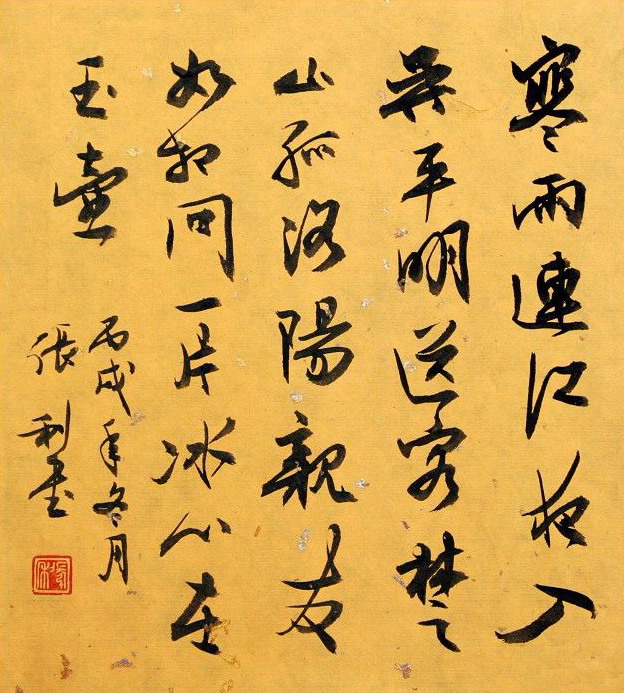 寒雨連江夜入
吳平明送客楚
山孤洛陽親友
如相問一片冰心在
玉壺
丙戌年冬月
張利書